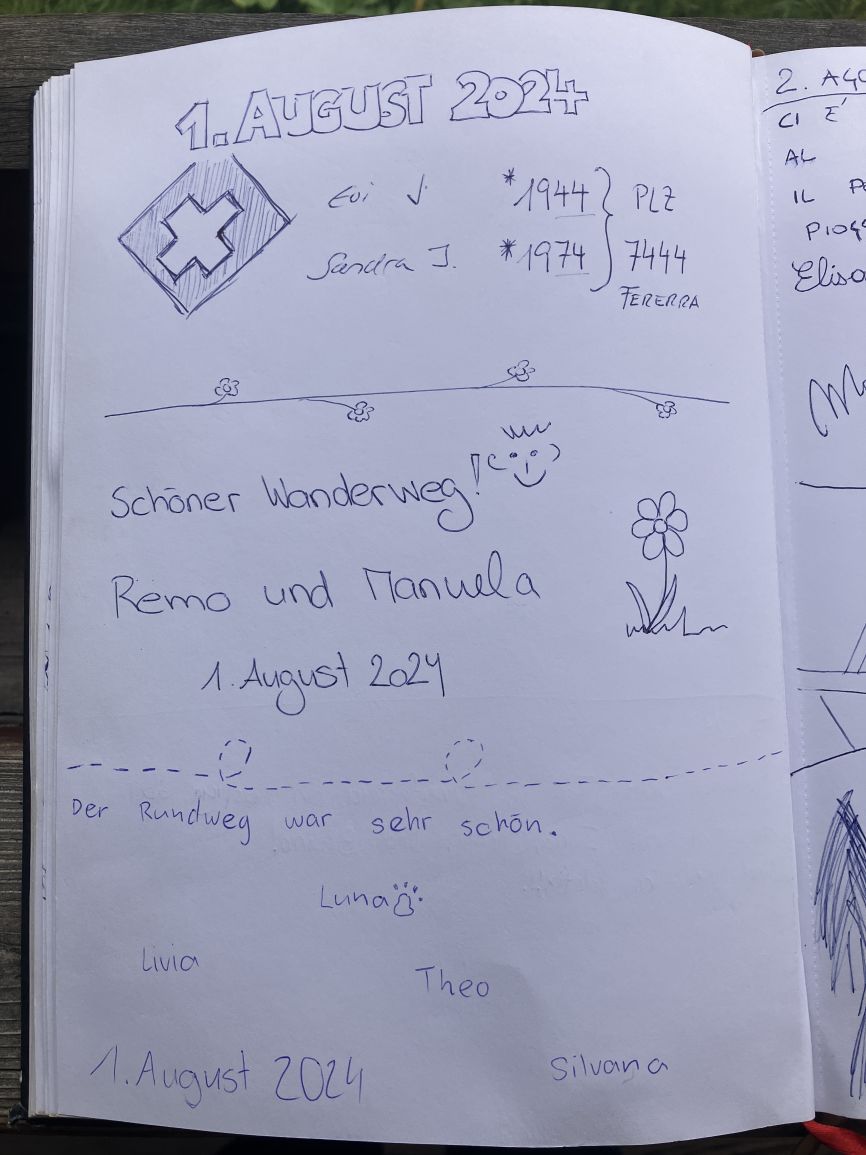 1. AUGUST 2024
Evi J. *1944 PLZ
Sandra J. *1974 7444
FERERRA
Schöner Wanderweg!
Remo und Manuela
1. August 2024
Der Rundweg war sehr schön.
Luna
Livia
Theo
1. August 2024
Silvana
2. AGO
CI E'
AL
IL
PIOGG
Elisa